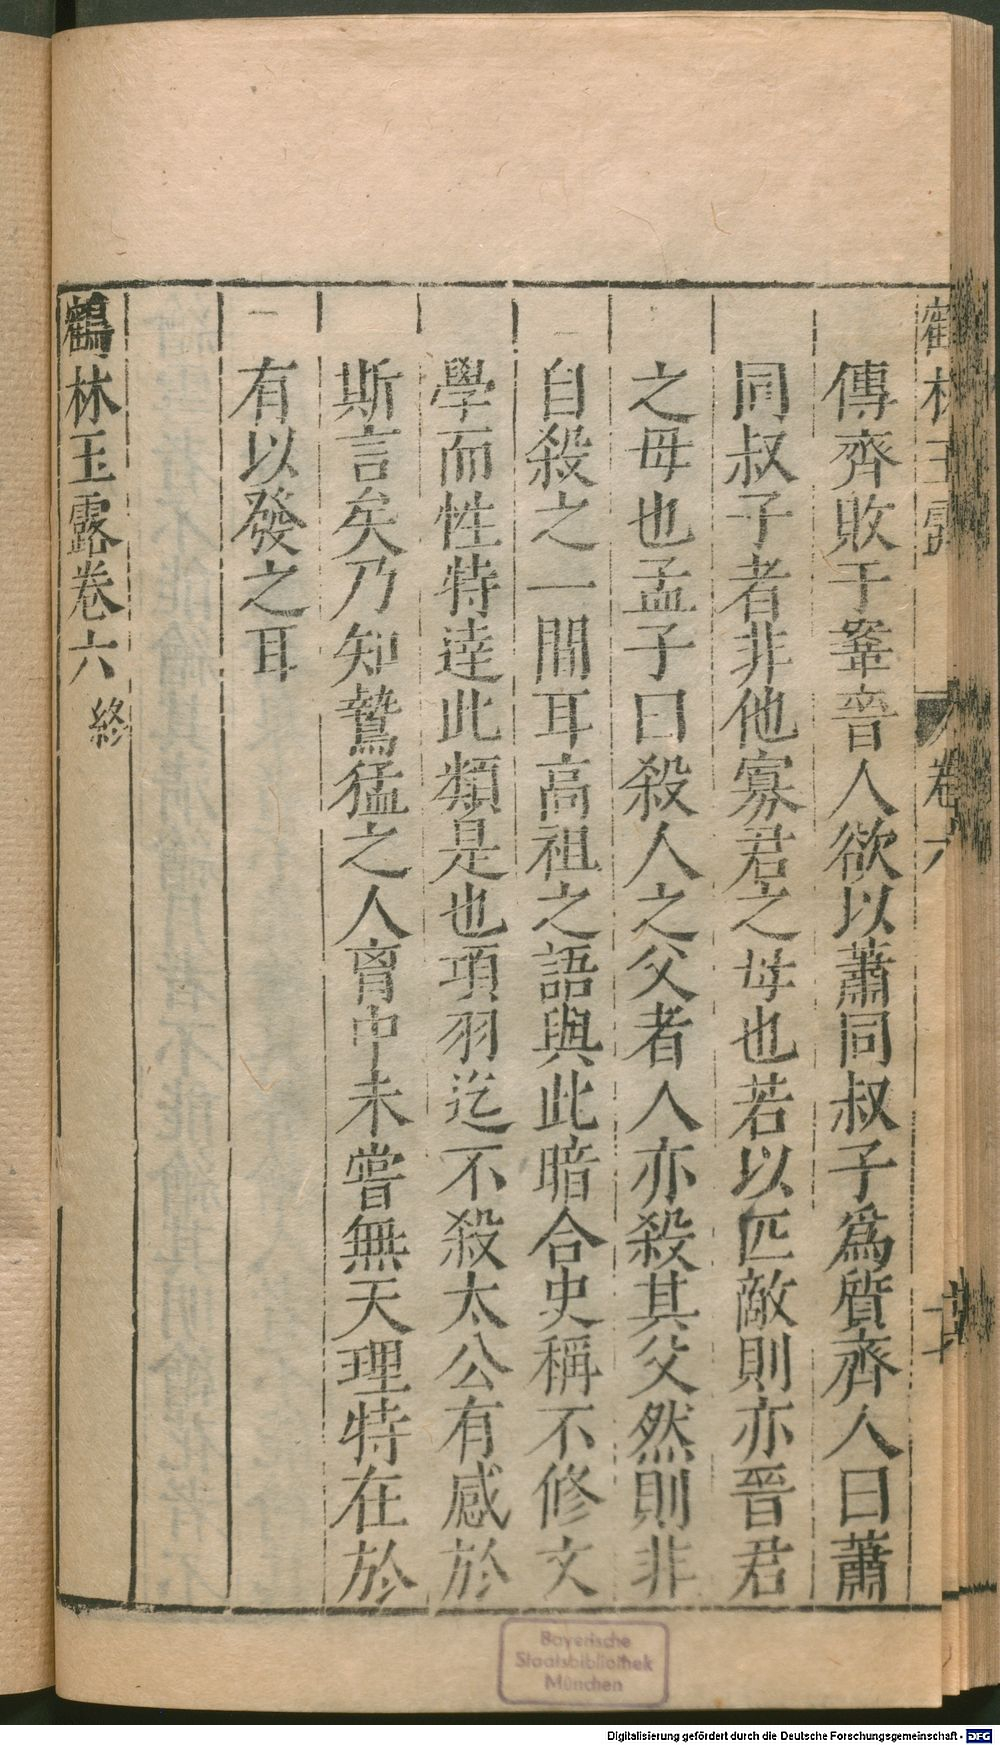 傳齊敗于鞌晉人欲以蕭同叔子爲質齊人曰蕭
同叔子者非他寡君之母也若以匹敵則亦晉君
之母也孟子曰殺人之父者人亦殺其父然則非
自殺之一間耳高祖之語與此暗合史稱不修文
學而性特達此類是也項羽迄不殺太公有感於
斯言矣乃知鷙猛之人胷中未嘗無天理特在於
有以發之耳
鶴林玉露卷六 終
Bayerische
Staatsbibliothek
München
Digitalisierung gefördert durch die Deutsche Forschungsgemeinschaft - DFG